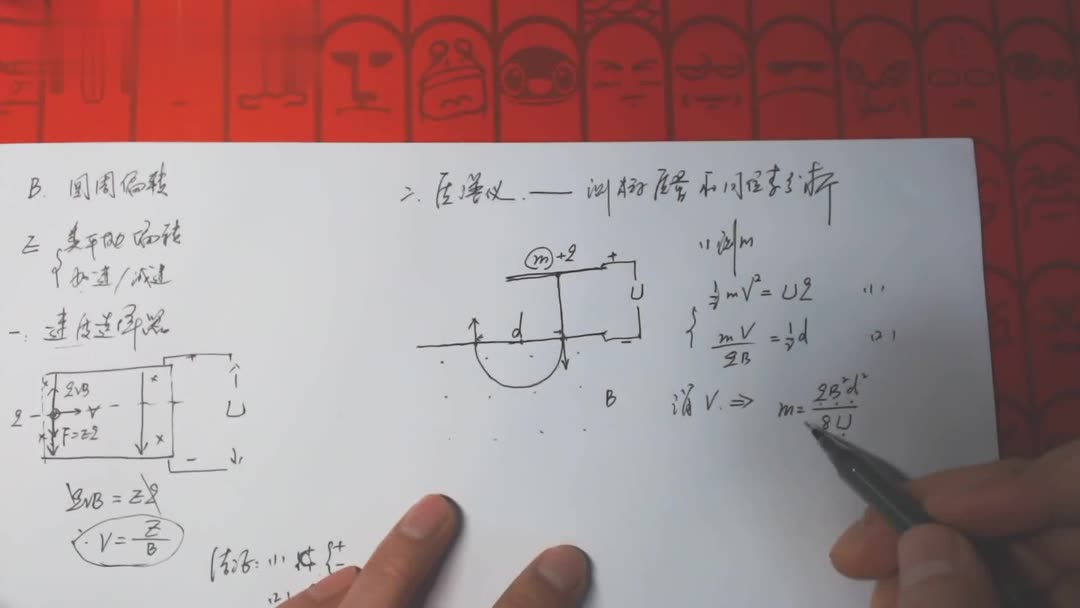 B. 圆周偏转
E { 类平抛偏转
加速/减速
一: 速度选择器
+
x
x
qvB
q
v
U
F=Eq
x
x
-
qvB = Eq
∴ V = E/B
结论: (1) 件 { + -
(2)
二. 质谱仪. —— 测核质量和同位素分析
m +q
+
U
d
-
B
(1) 测m
{ 1/2 mV² = Uq (1)
mV/qB = 1/2 d (2)
消 V. ⇒ m = qB²d²/8U